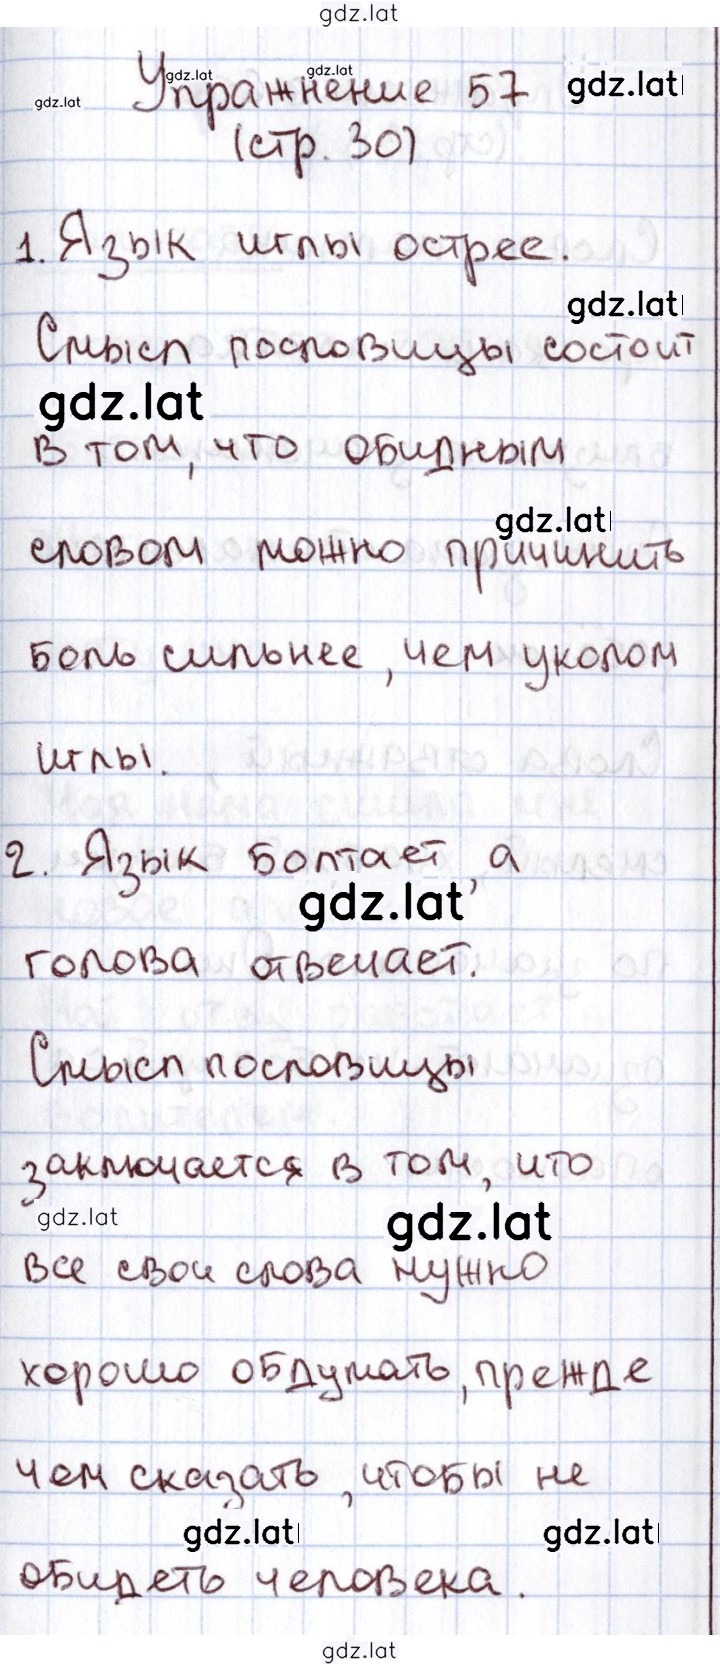 gdz.lat
Упражнение 57
gdz.lat gdz.lat gdz.lat gdz.lat
(стр. 30)
1. Язык иглы острее.
gdz.lat
Смысл пословицы состоит
gdz.lat
в том, что обидным
gdz.lat
словом можно причинить
боль сильнее, чем уколом
иглы.
2. Язык болтает, а
gdz.lat
голова отвечает.
Смысл пословицы
заключается в том, что
gdz.lat gdz.lat
все свои слова нужно
хорошо обдумать, прежде
чем сказать, чтобы не
gdz.lat gdz.lat
обидеть человека.
gdz.lat